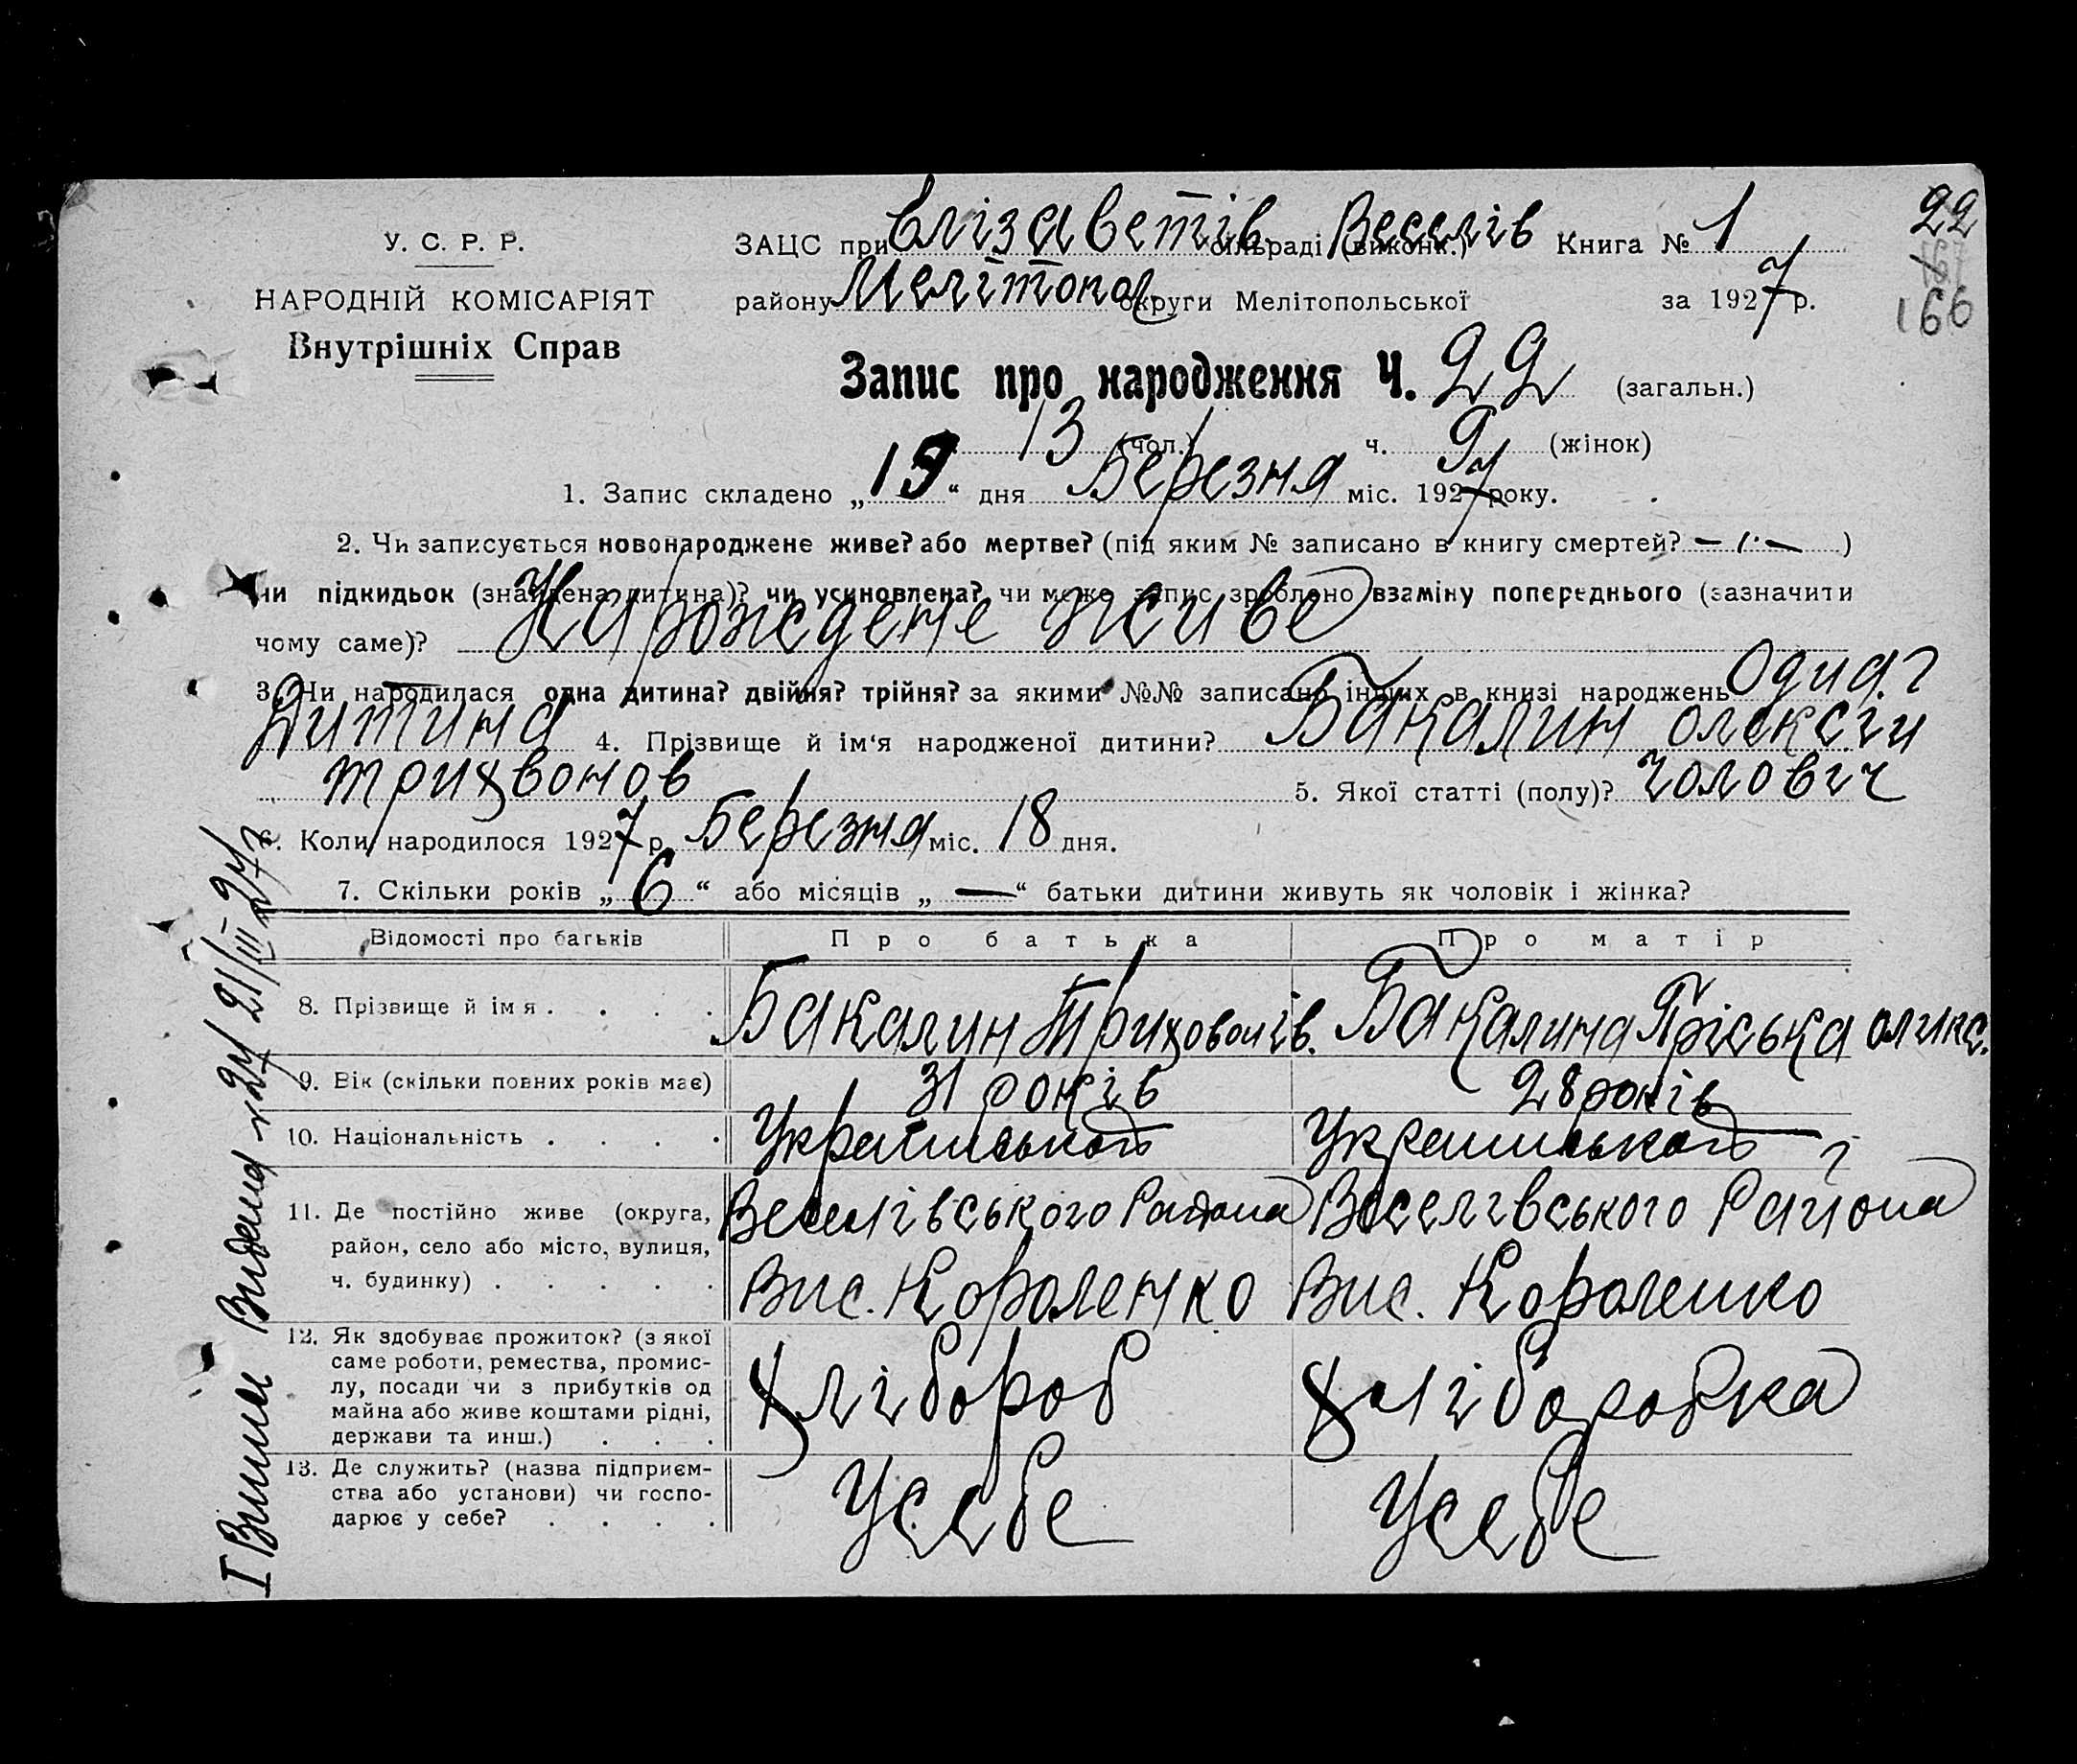 22
У. С. Р. Р.
НАРОДНІЙ КОМІСАРІЯТ
Внутрішніх Справ
ЗАЦС при Єлізаветів сільраді (виконк.) Веселів Книга № 1
166
району Мелітопол округи Мелітопольської за 1927 р.
Запис про народження Ч. 22 (загальн.)
13 (чол.) ч. 9 (жінок)
1. Запис складено „19“ дня Березня міс. 1927 року.
2. Чи записується новонароджене живе? або мертве? (під яким № записано в книгу смертей? — )
чи підкидьок (знайдена дитина)? чи усиновлена? чи може запис зроблено взаміну попереднього (зазначити
чому саме)? Нарождене живе
3. Чи народилася одна дитина? двійня? трійня? за якими №№ записано інших в книзі народжень Одна
Дитина 4. Прізвище й ім‘я народженої дитини? Бакалин олексій
трихвонов 5. Якої статті (полу)? чоловіч
6. Коли народилося 1927 р. Березня міс. 18 дня.
7. Скільки років „6“ або місяців „—“ батьки дитини живуть як чоловік і жінка?
Відомості про батьків Про батька Про матір
8. Прізвище й імя . . . . Бакалин Трихвонів. Бакалина Пріська оликс.
9. Вік (скільки повних років має) 31 років 28 років
10. Національність . . . . Української Української
11. Де постійно живе (округа,
район, село або місто, вулиця,
ч. будинку) . . . . .
Веселівського Района Веселівського Района
Вис. Короленко Вис. Короленко
12. Як здобуває прожиток? (з якої
саме роботи, ремества, промис-
лу, посади чи з прибутків од
майна або живе коштами рідні,
держави та инш.) . . .
хлібороб хліборобка
13. Де служить? (назва підприєм-
ства або установи) чи госпо-
дарює у себе? . . . .
Усебе Усебе
I Випис Видана 21/III 27 р